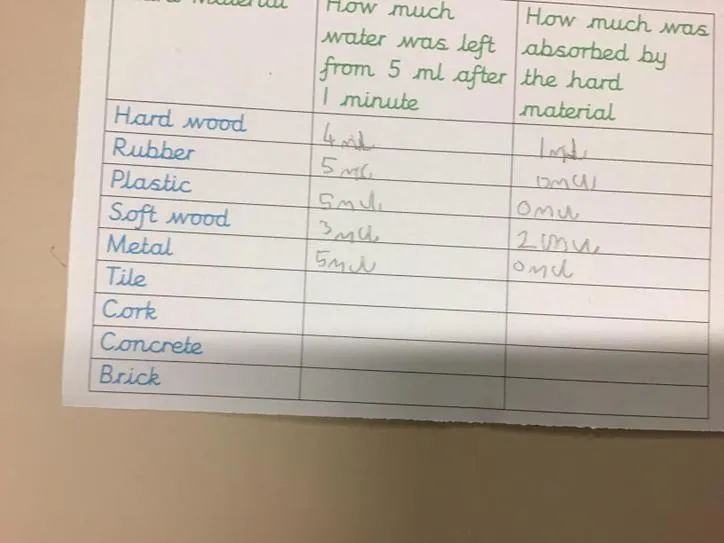 Material
How much
water was left
from 5 ml after
1 minute
How much was
absorbed by
the hard
material
Hard wood 4ml 1ml
Rubber 5ml 0ml
Plastic 5ml 0ml
Soft wood 3ml 2ml
Metal 5ml 0ml
Tile
Cork
Concrete
Brick